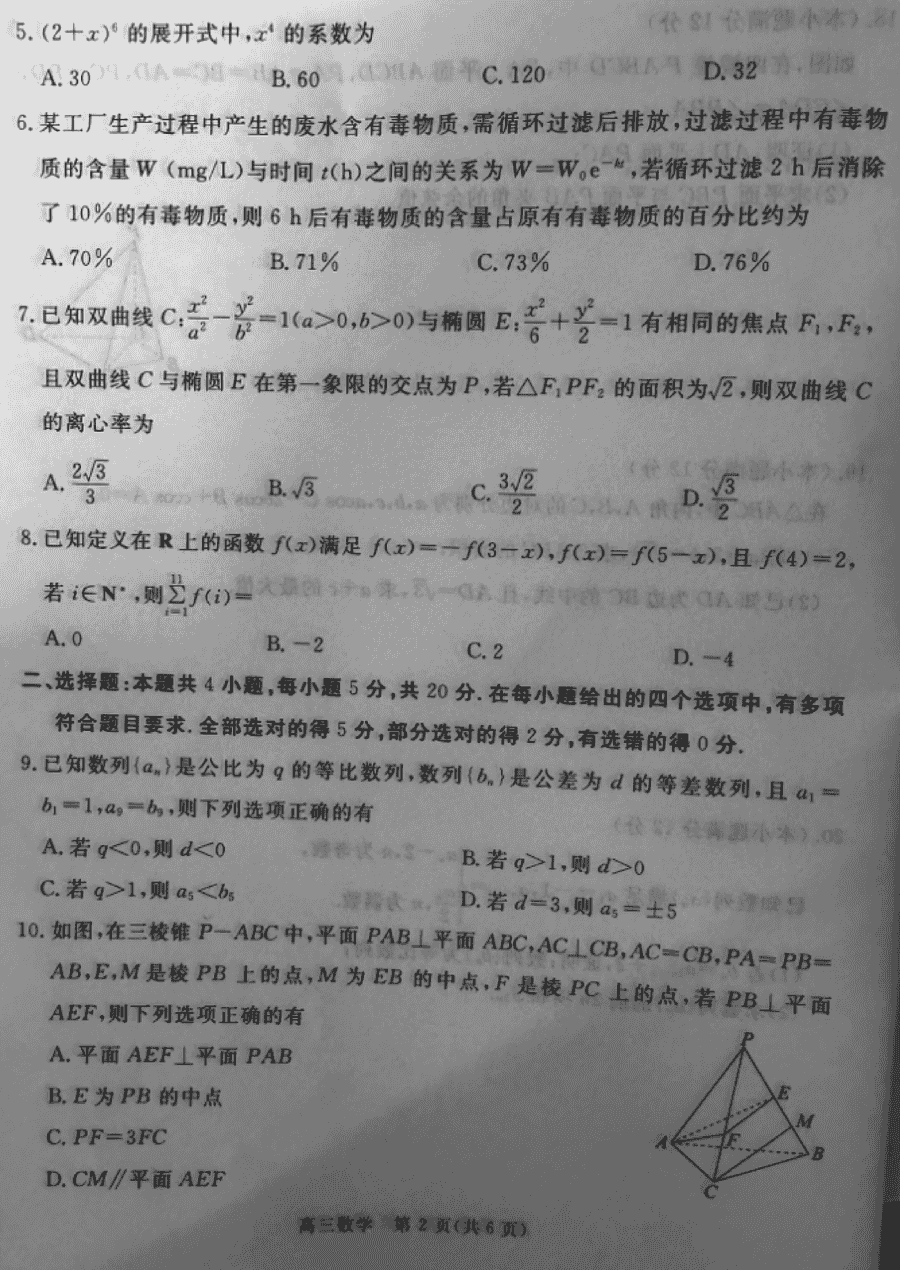 5. (2+x)⁶ 的展开式中,x⁴ 的系数为
A. 30 B. 60 C. 120 D. 32
6. 某工厂生产过程中产生的废水含有毒物质,需循环过滤后排放,过滤过程中有毒物
质的含量 W (mg/L)与时间 t(h)之间的关系为 W=W₀e⁻ᵏᵗ,若循环过滤 2 h 后消除
了 10%的有毒物质,则 6 h 后有毒物质的含量占原有有毒物质的百分比约为
A. 70% B. 71% C. 73% D. 76%
7. 已知双曲线 C:x²/a²−y²/b²=1(a>0,b>0)与椭圆 E:x²/6+y²/2=1 有相同的焦点 F₁,F₂,
且双曲线 C 与椭圆 E 在第一象限的交点为 P,若△F₁PF₂ 的面积为√2,则双曲线 C
的离心率为
A. 2√3/3 B. √3 C. 3√2/2 D. √3/2
8. 已知定义在 R 上的函数 f(x)满足 f(x)=−f(3−x),f(x)=f(5−x),且 f(4)=2,
若 i∈N*,则∑_{i=1}^{11} f(i)=
A. 0 B. −2 C. 2 D. −4
二、选择题:本题共 4 小题,每小题 5 分,共 20 分. 在每小题给出的四个选项中,有多项
符合题目要求. 全部选对的得 5 分,部分选对的得 2 分,有选错的得 0 分.
9. 已知数列{aₙ}是公比为 q 的等比数列,数列{bₙ}是公差为 d 的等差数列,且 a₁=
b₁=1,a₉=b₉,则下列选项正确的有
A. 若 q<0,则 d<0 B. 若 q>1,则 d>0
C. 若 q>1,则 a₅<b₅ D. 若 d=3,则 a₅=±5
10. 如图,在三棱锥 P−ABC 中,平面 PAB⊥平面 ABC,AC⊥CB,AC=CB,PA=PB=
AB,E,M 是棱 PB 上的点,M 为 EB 的中点,F 是棱 PC 上的点,若 PB⊥平面
AEF,则下列选项正确的有
A. 平面 AEF⊥平面 PAB
B. E 为 PB 的中点
C. PF=3FC
D. CM∥平面 AEF
P
E
M
A
F
B
C
高三数学 第 2 页(共 6 页)